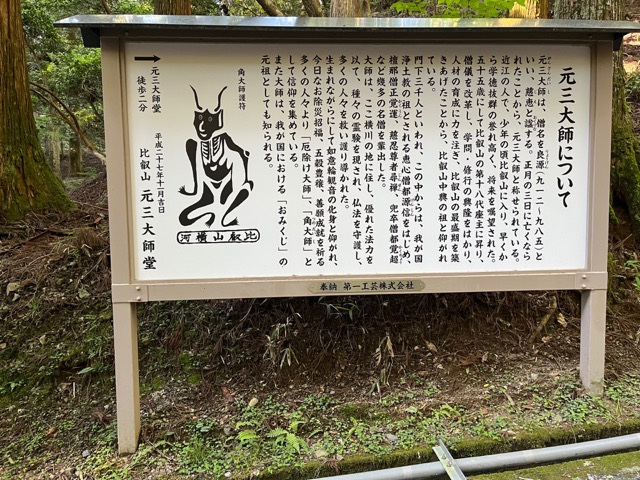 元三大師について
元三大師は、僧名を良源（九一二〜九八五）と
いい、慈恵と諡する。正月の三日に亡くなら
れたことから、元三大師と称せられている。
近江の人で、少年の頃比叡山に入り、早くか
ら学徳抜群の誉れ高く、将来を嘱望された。
五十五歳にして比叡山の第十八代座主に昇り、
僧儀を改革し、学問・修行の興隆をはかり、
人材の育成に力を注ぎ、比叡山の最盛期を築
きあげたことから、比叡山中興の祖と仰がれ
ている。
門下三千人といわれ、この中からは、我が国
浄土教の祖とされる恵心僧都源信をはじめ、
檀那僧正覚運、慈忍尊者尋禅、兜卒僧都覚超
など幾多の名僧を輩出した。
大師は、ここ横川の地に住し、優れた法力を
以て、種々の霊験を現され、仏法を守護し、
多くの人々を救い護り導かれた。
生まれながらにして如意輪観音の化身と仰がれ、
今日なお除災招福、五穀豊穣、善願成就を祈る
多くの人々より「厄除け大師」、「角大師」と
して信仰を集めている。
また大師は、我が国における「おみくじ」の
元祖としても知られる。
角大師護符
比叡山横河
平成二十七年十一月吉日
比叡山 元三大師堂
元三大師堂
徒歩二分
奉納 第一工芸株式会社